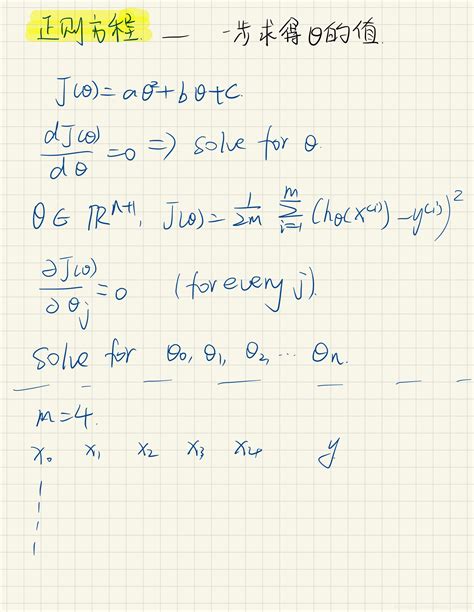 正则方程. — 一步求得θ的值.
J(θ)=aθ²+bθ+c.
dJ(θ)/dθ=0 ⇒ solve for θ.
θ∈ℝⁿ⁺¹, J(θ)=1/2m ∑ᵢ₌₁ᵐ (hθ(x⁽ⁱ⁾)-y⁽ⁱ⁾)²
∂J(θ)/∂θⱼ=0 (for every j).
solve for θ₀, θ₁, θ₂, ... θₙ.
m=4.
x₀ x₁ x₂ x₃ x₄ y
1
1
1
1